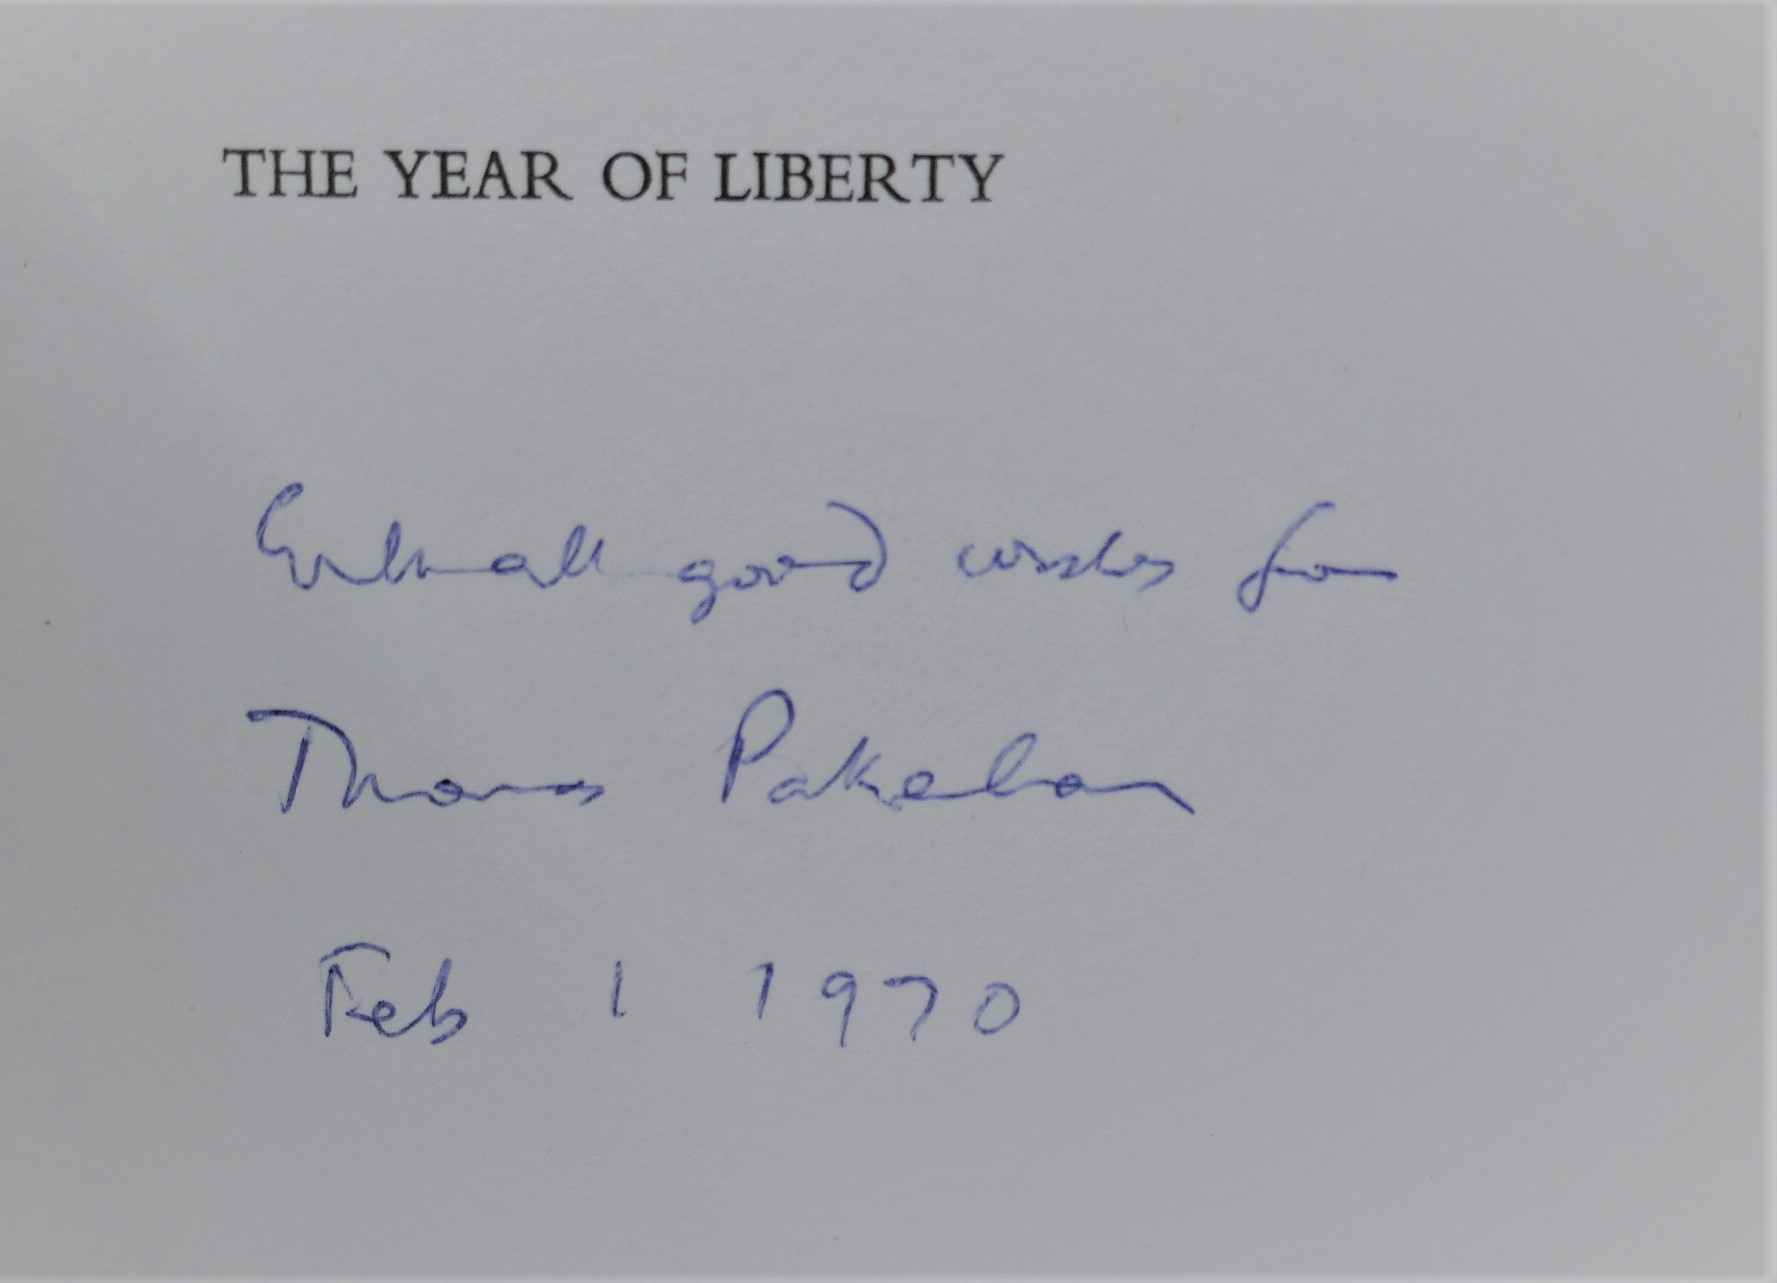 THE YEAR OF LIBERTY
With all good wishes from
Thomas Pakenham
Feb 1 1970